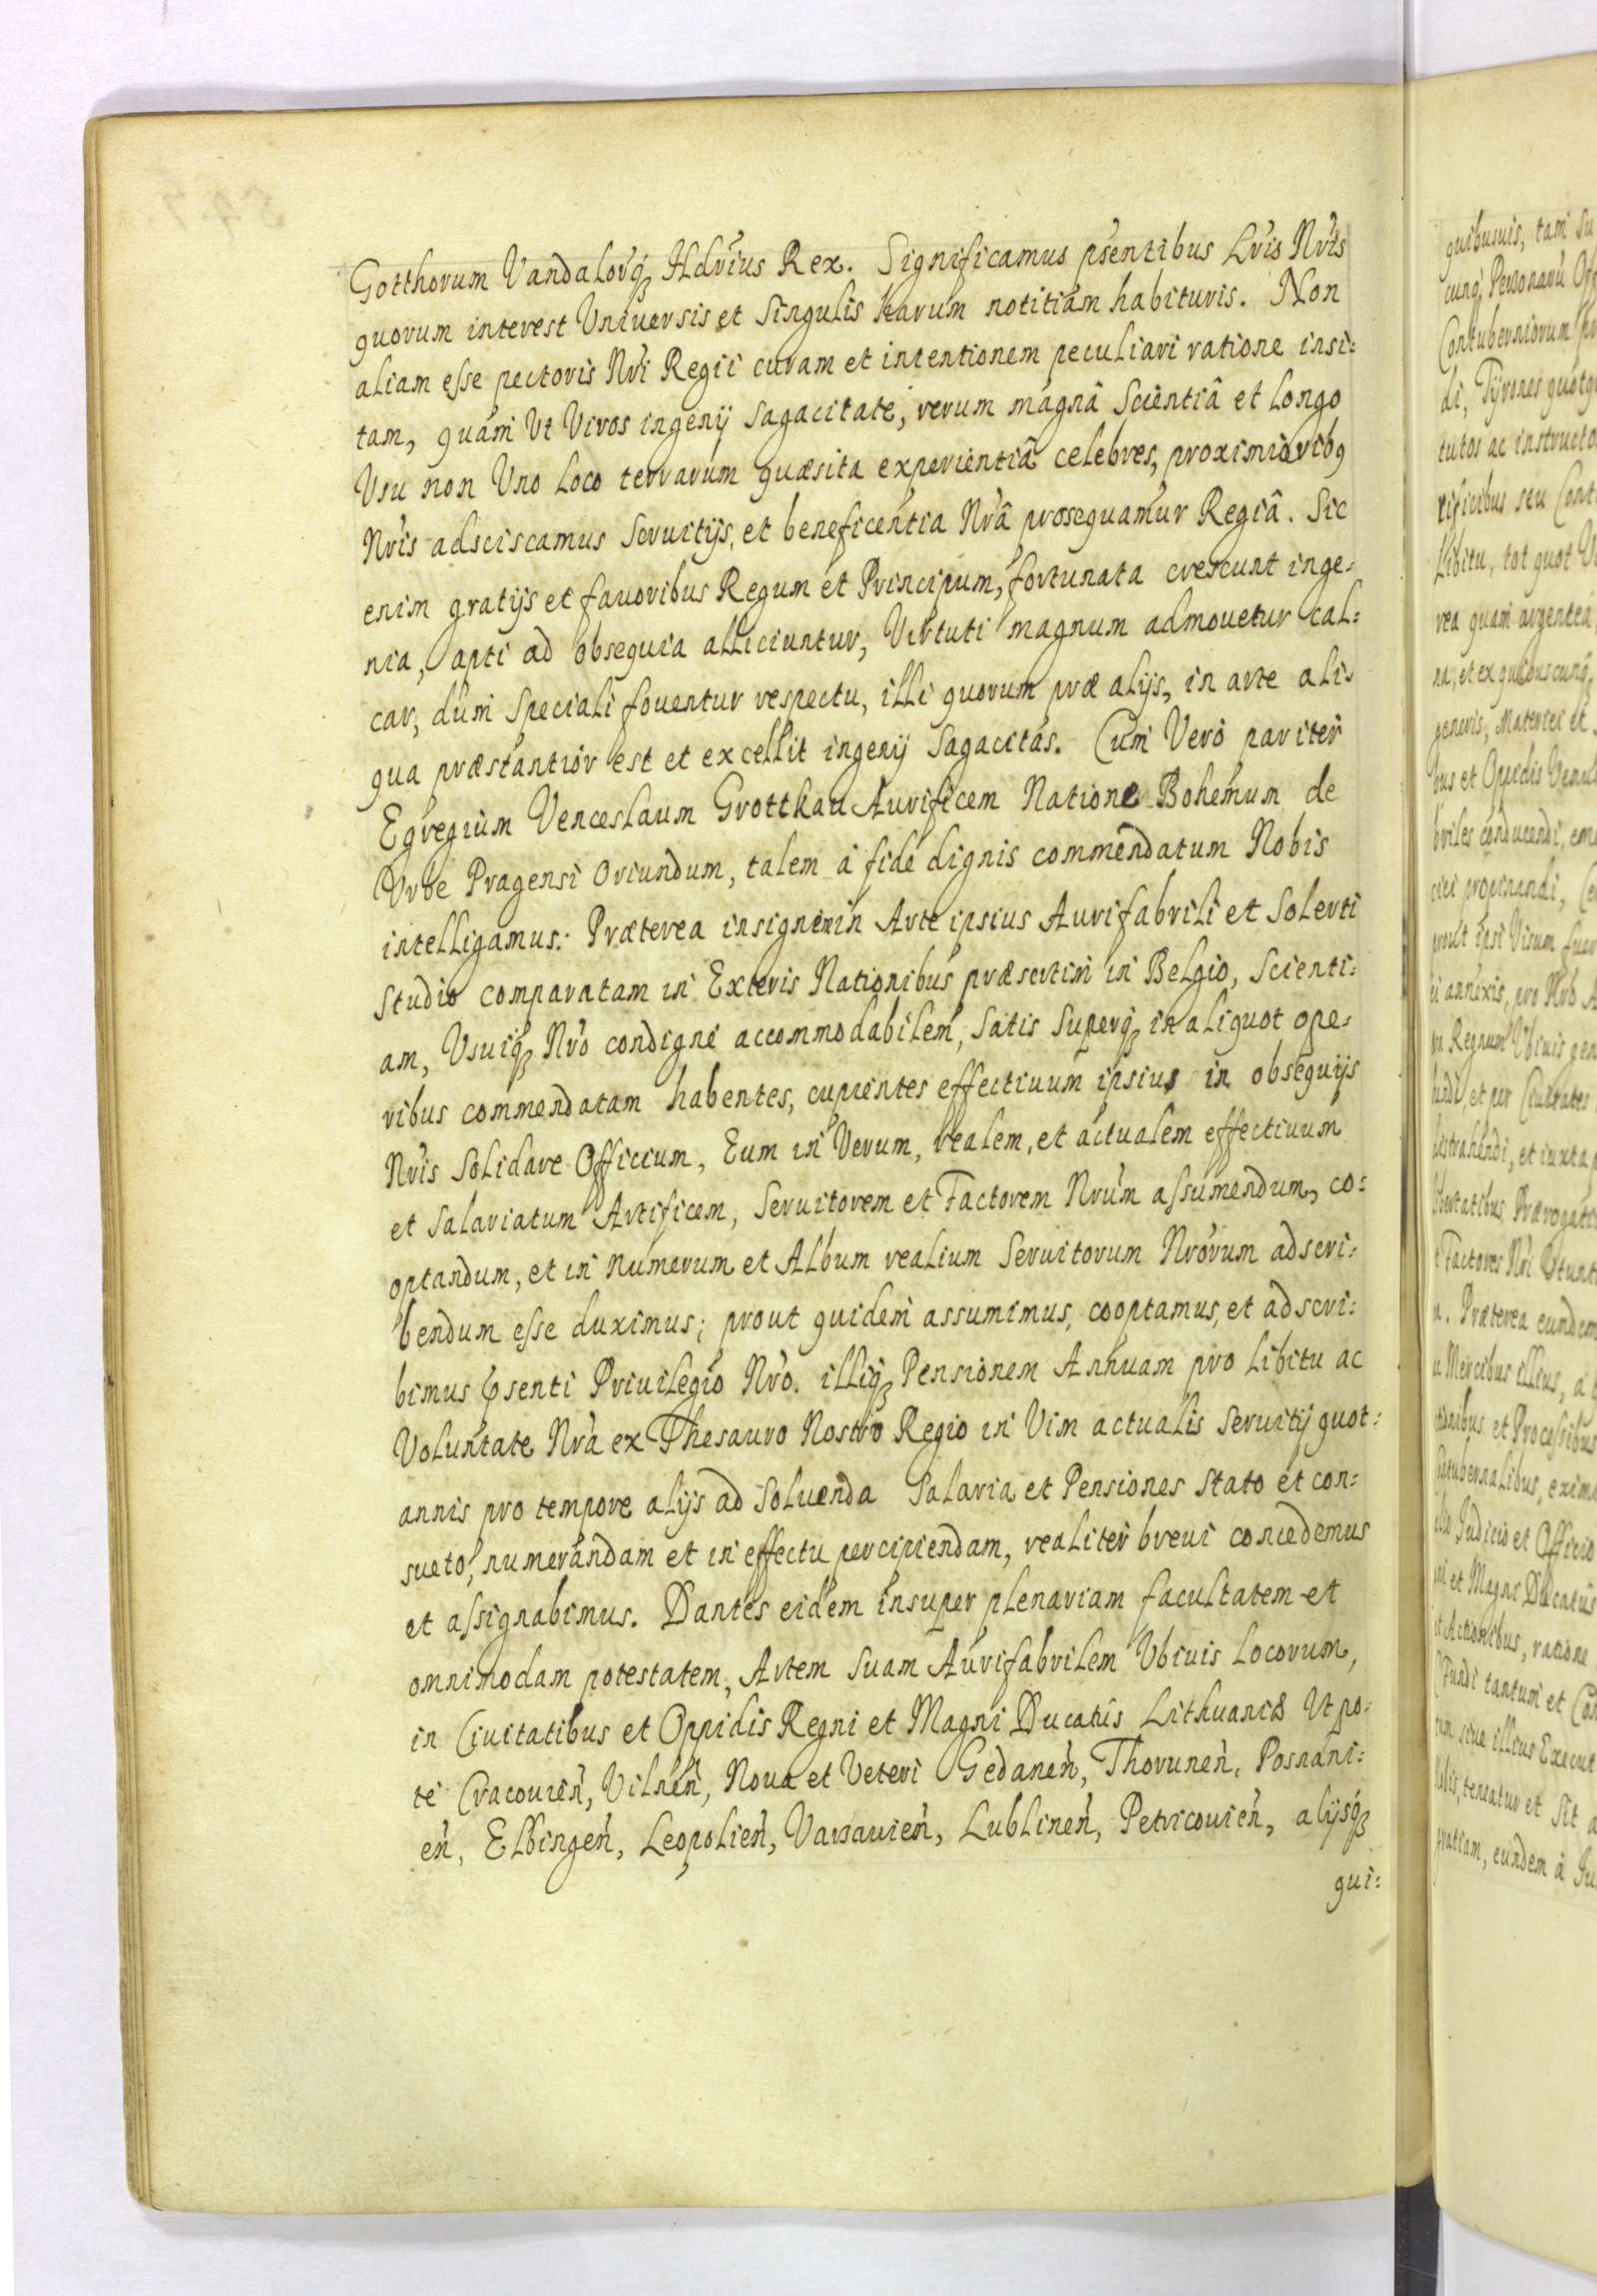 Gotthorum Vandalorq₃ Hdrius Rex. Significamus psentibus Lris Nris
quorum interest Universis et Singulis harum notitiam habituris. Non
aliam esse pectoris Nri Regii curam et intentionem peculiari ratione insi:
tam, quàm Vt Viros ingenij sagacitate, rerum magnâ Scientiâ et longo
Vsu non Vno loco terrarum quæsita experientiâ celebres, proximioribꝰ
Nris adsciscamus Seruitijs, et beneficentia Nrâ prosequamur Regiâ. Sic
enim gratijs et fauoribus Regum et Principum, fortunata crescunt inge-
nia, apti ad obsequia alliciuntur, Virtuti magnum admouetur cal:
car, dum Speciali fouentur respectu, illi quorum præ alijs, in arte ali-
qua præstantior est et excellit ingenij sagacitas. Cum Verò pariter
Egregium Venceslaum Grotthau Aurificem Natione Bohemum de
Vrbe Pragensi Oriundum, talem à fide dignis commendatum Nobis
intelligamus: Præterea insignem in Arte ipsius Aurifabrili et Solerti
studio comparatam in Exteris Nationibus præsertim in Belgio, Scienti:
am, Vsuiq₃ Nro condignè accommodabilem, satis superq₃ in aliquot ope-
ribus commendatam habentes, cupientes effectiuum ipsius in obsequijs
Nris solidare Officium, Eum in Verum, realem, et actualem effectiuum
et Salariatum Artificem, Seruitorem et Factorem Nrum assumendum, co:
optandum, et in Numerum et Album realium Seruitorum Nrorum adscri:
bendum esse duximus; prout quidem assumimus, cooptamus, et adscri:
bimus psenti Priuilegio Nro. illiq₃ Pensionem Annuam pro libitu ac
Voluntate Nra ex Thesauro Nostro Regio in Vim actualis seruitij quot:
annis pro tempore alijs ad Soluenda Salaria et Pensiones stato et con:
sueto, numerandam et in effectu percipiendam, realiter breui concedemus
et assignabimus. Dantes eidem insuper plenariam facultatem et
omnimodam potestatem, Artem suam Aurifabrilem Vbiuis locorum,
in Ciuitatibus et Oppidis Regni et Magni Ducatûs Lithuaniæ Vt po-
te Cracouien, Vilnen, Noua et Veteri Gedanen, Thorunen, Posnani:
en, Elbingen, Leopolien, Varsauien, Lublinen, Petricouien, alijsq₃
qui:
quibusuis, tam Su
cunq₃ Personarũ Off
Contuberniorum
di, Tyrones quotq
tutos ac instructo
tificibus seu Cont
libitu, tot quot V
rea quam argentea
na, et ex quibuscunq₃
generis, Materiei et
bus et Oppidis
briles conducendi, em
prout ipsi Visum fuer
annexis, pro Nro A
Regnum Vbiuis gen
et per Ciuitates
et iuxta
Prærogati
Factores Nri Vtunt
. Præterea eundem
Mercibus illius, à
et Processibus
exim
Judicio et Officio
et Magni Ducatus
et Actionibus, ratione
Fundi tantum et Con
siue illius Execut
teneatur et sit
gratiam, eundem à Ju